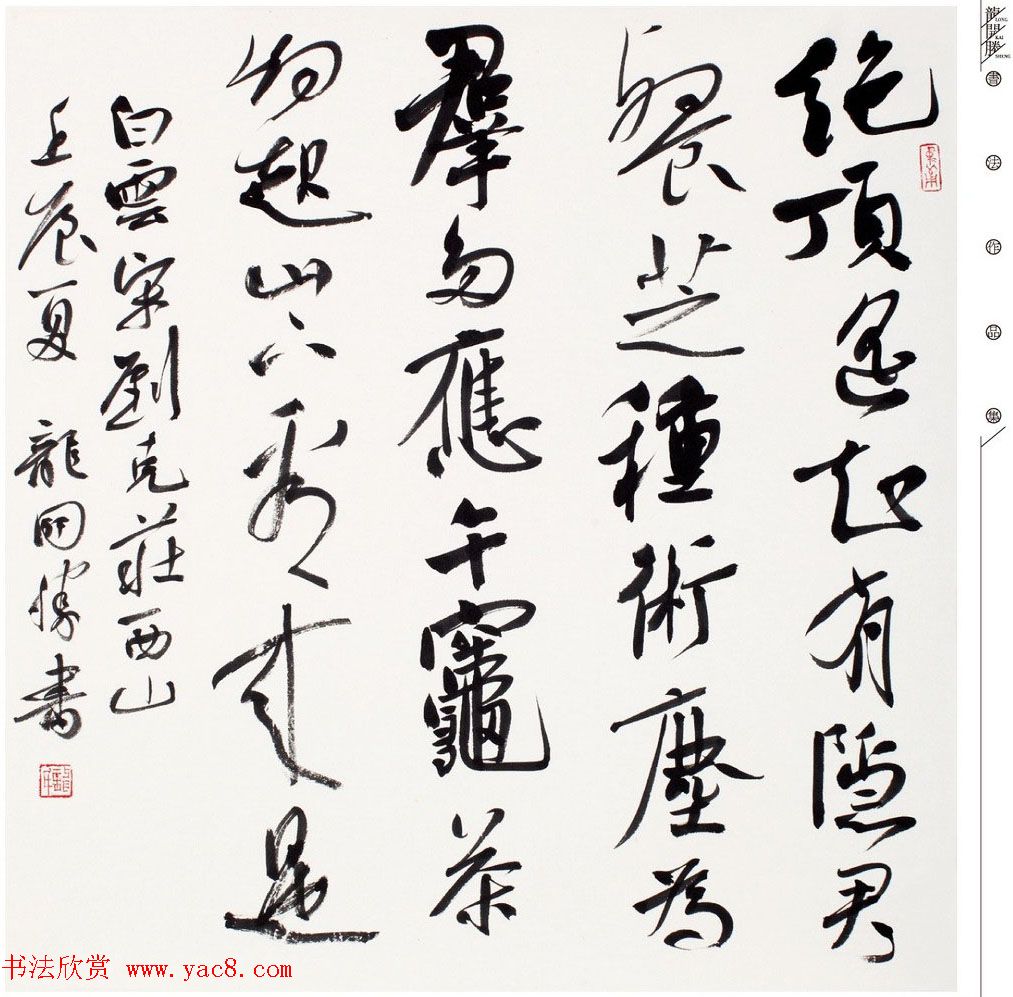 絕頂遥知有隱君
餐芝種術塵為
羣多應午竈茶
烟起山下看來是
白雲 宋劉克莊西山
壬辰夏 龍開勝書
龍開勝
LONG
KAI
SHENG
書法作品集
书法欣赏 www.yac8.com